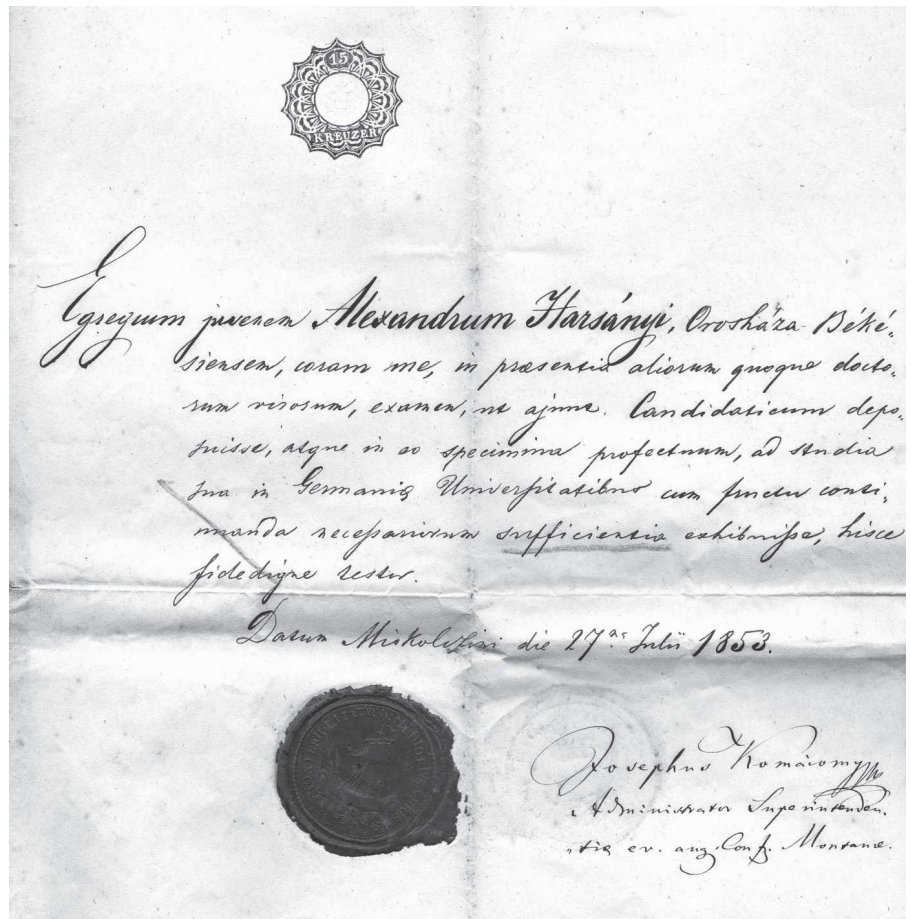 15
KREUZER
Egregium juvenem Alexandrum Harsányi, Orosháza Béké-
siensem, coram me, in præsentia aliorum quoque docto-
rum virorum, examen, ut ajunt. Candidaticum depo-
suisse, atque in eo specimina profectuum, ad studia
sua in Germaniæ Universitatibus cum fructu conti-
nuanda necessariorum sufficientia exhibuisse, hisce
fidedigne testor.
Datum Miskolczini die 27ae Julii 1853.
Josephus Komáromy
Administrator Superintenden-
tiæ ev. aug. Conf. Montanæ.